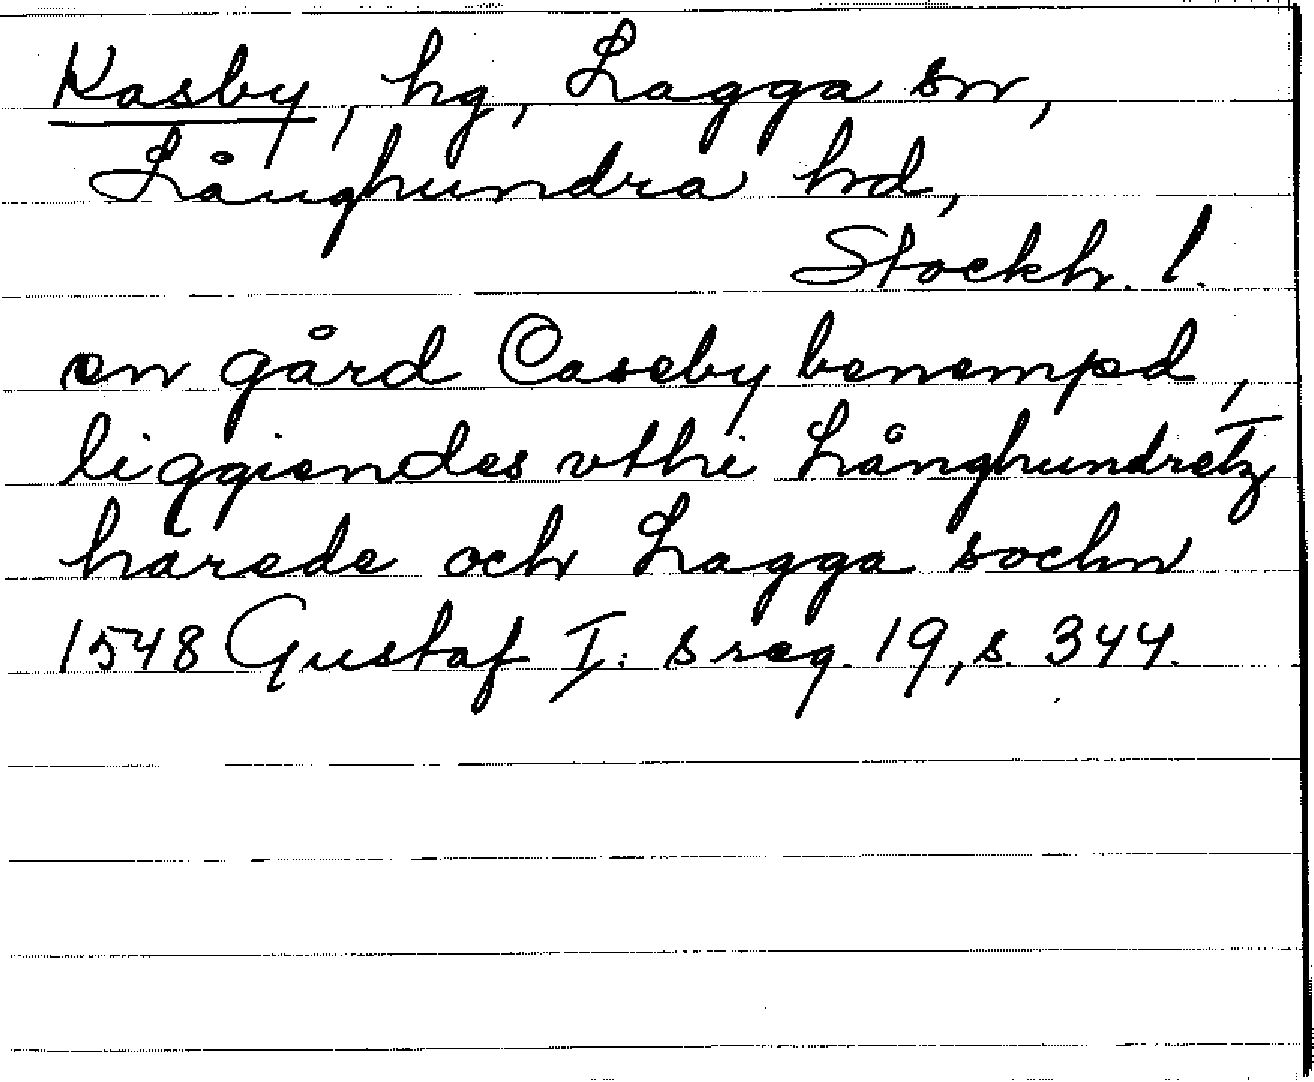 Kasby, hg, Lagga sn,
Långhundra hd,
Stockh. l.
en gård Caseby benempd,
liggiendes vthi Långhundretz
härede och Lagga sochn
1548 Gustaf I:s reg. 19, s. 344.